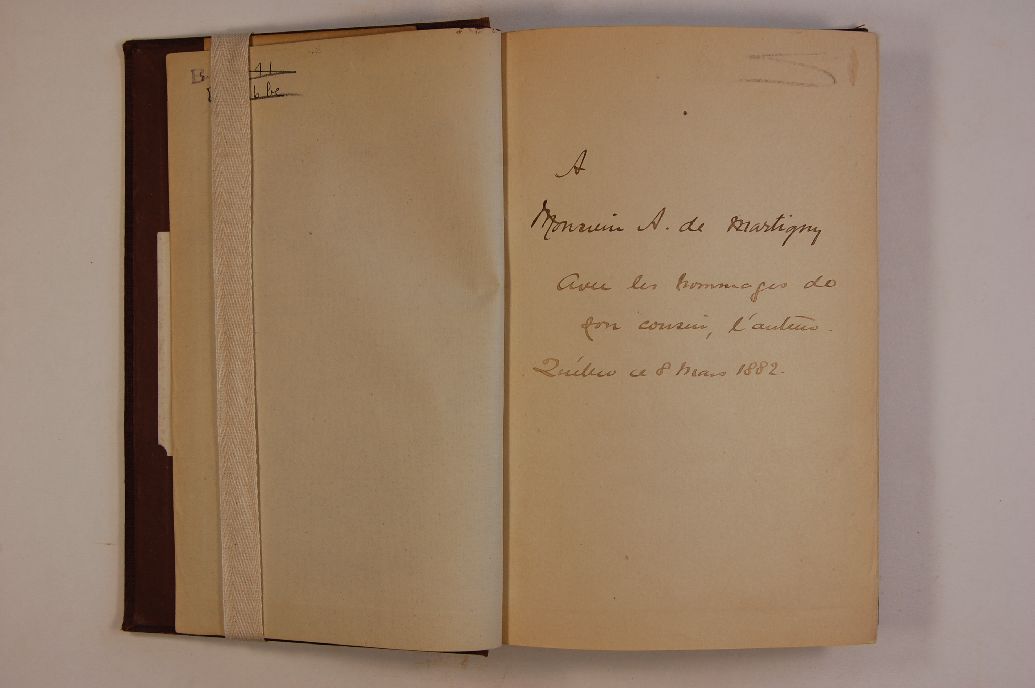 A
Monsieur A. de Martigny
Avec les hommages de
son cousin, l'auteur.
Québec ce 8 Mars 1882.